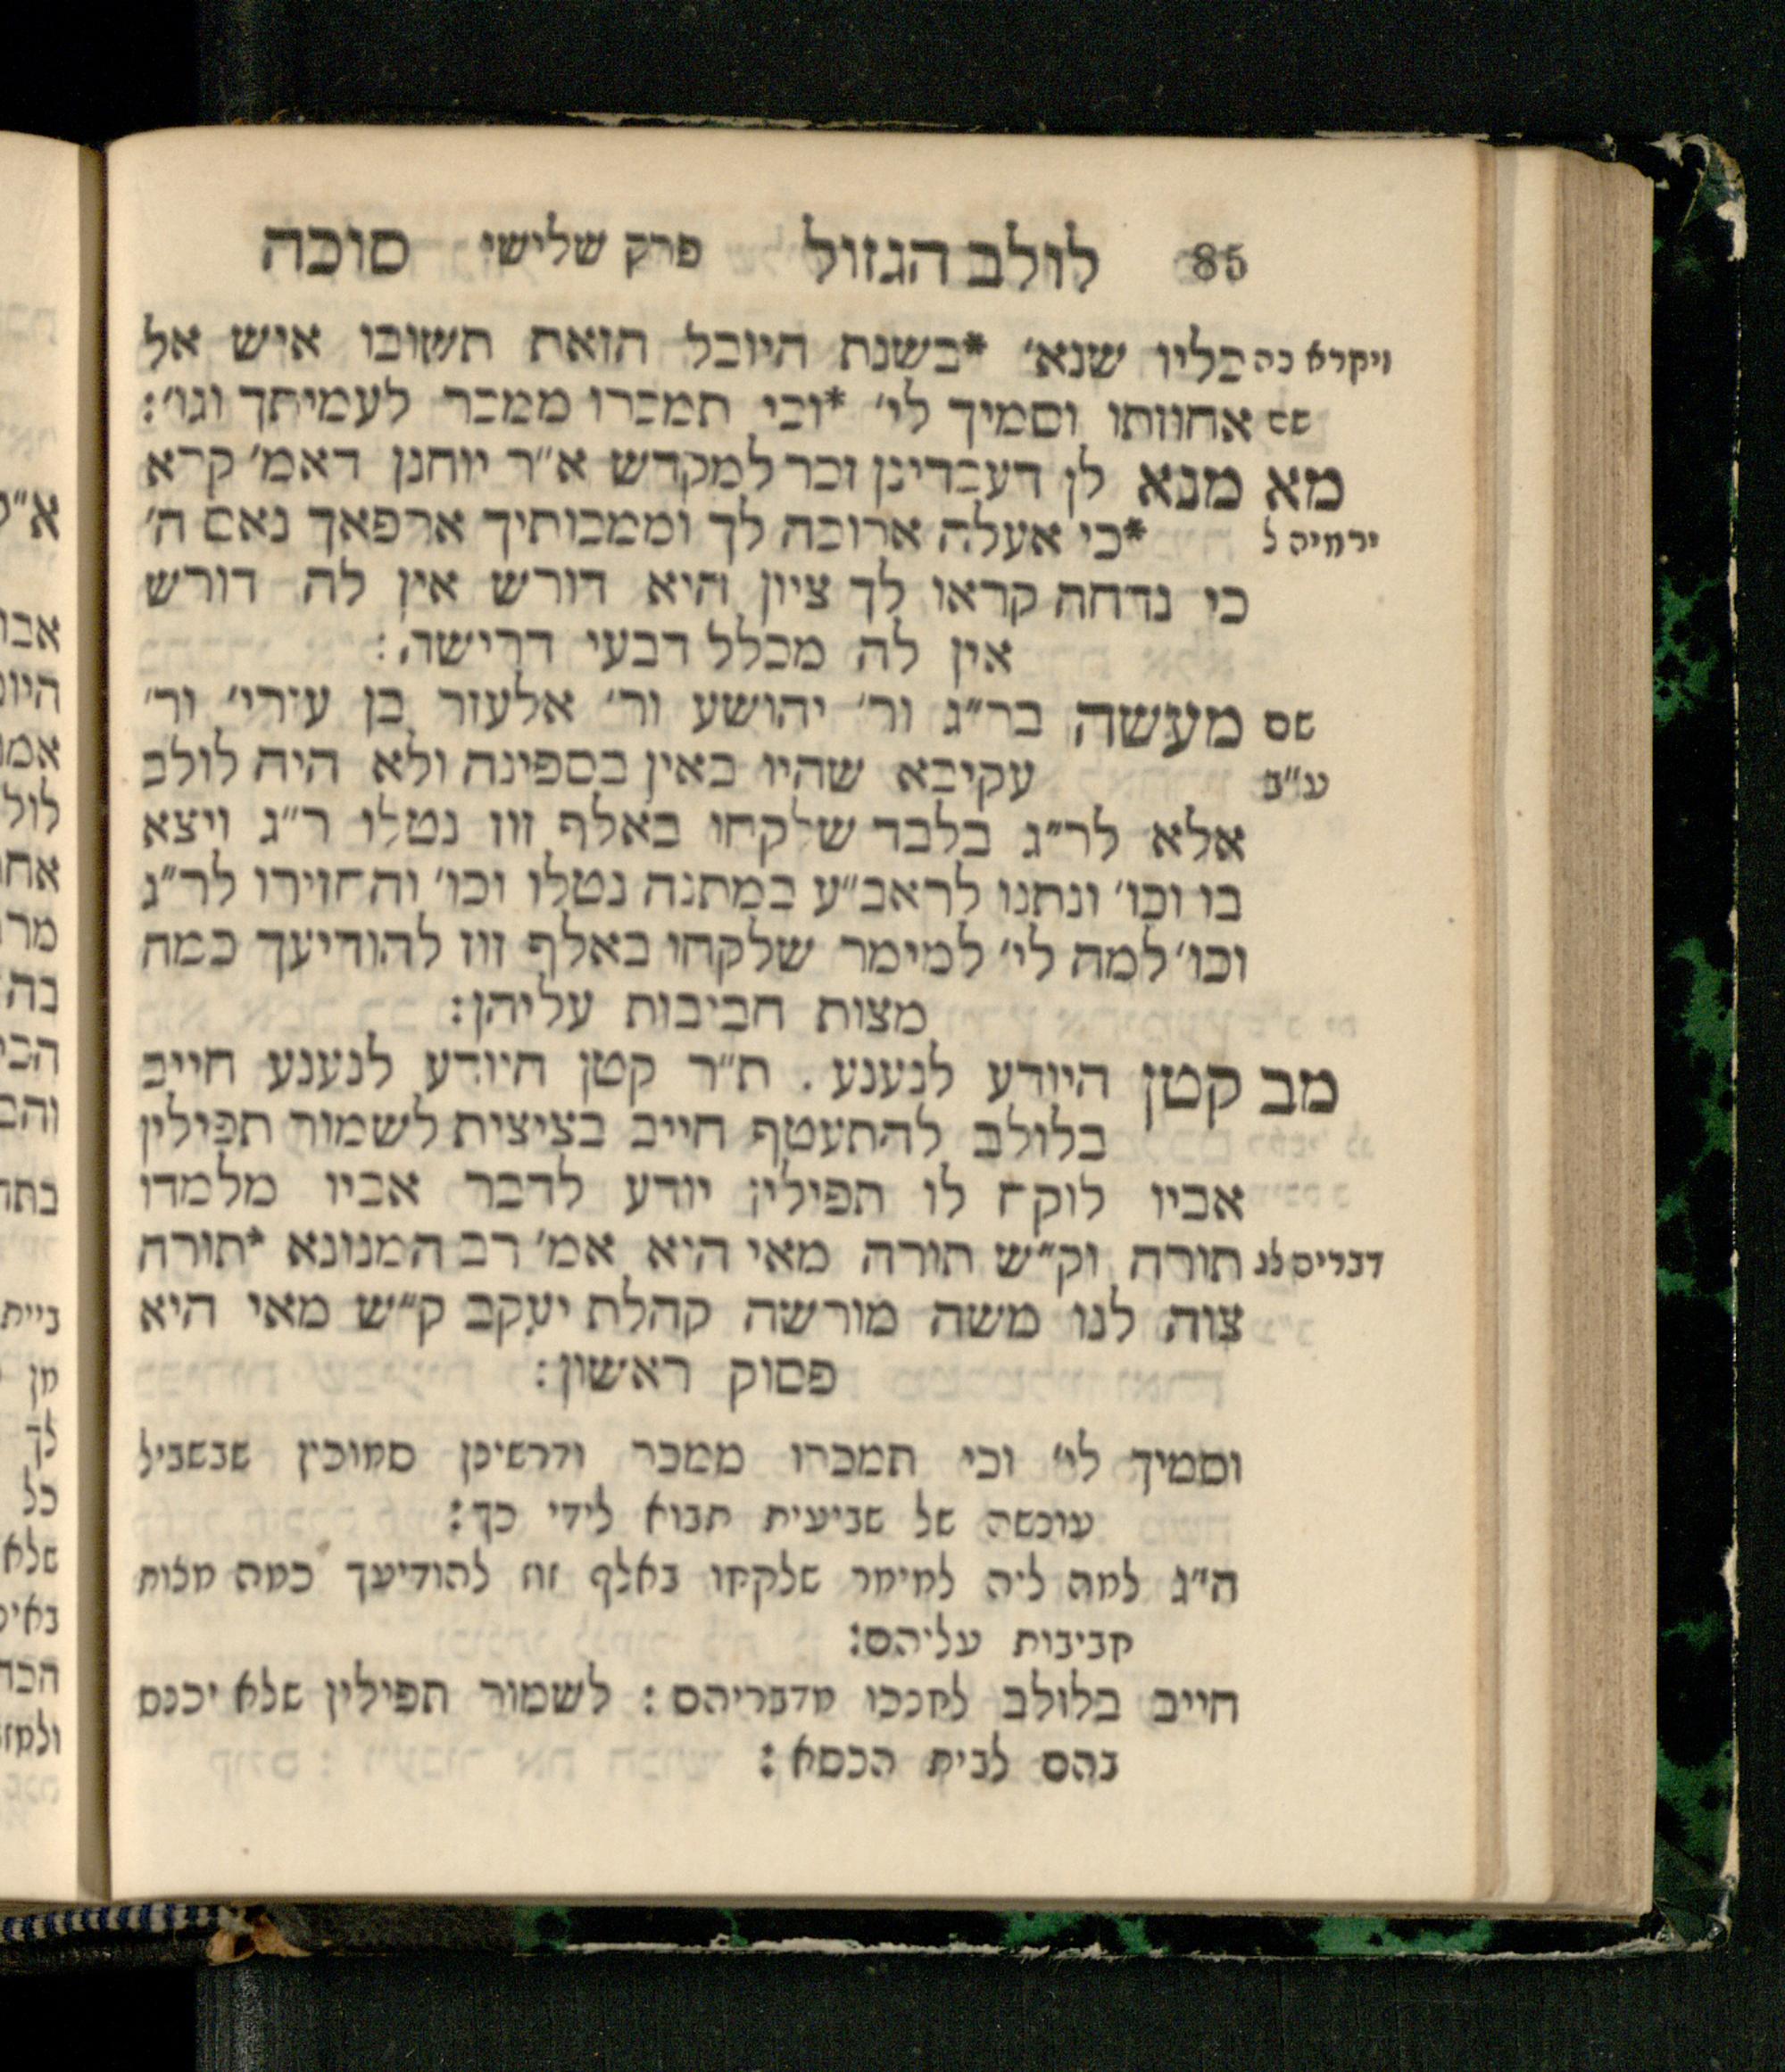 85 לולב הגזול פרק שלישי סוכה
ויקרא כה כליו שנא׳ *בשנת היובל הזאת תשובו איש אל
שם אחוזתו וסמיך לי׳ *וכי תמכרו ממכר לעמיתך וגו׳:
מא מנא לן דעבדינן זכר למקדש א״ר יוחנן דאמ׳ קרא
ירמיה ל *כי אעלה ארוכה לך וממכותיך ארפאך נאם ה׳
כי נדחה קראו לך ציון היא דורש אין לה דורש
אין לה מכלל דבעי דרישה:
שם מעשה בר״ג ור׳ יהושע ור׳ אלעזר בן עזרי׳ ור׳
ע״ב עקיבא שהיו באין בספינה ולא היה לולב
אלא לר״ג בלבד שלקחו באלף זוז נטלו ר״ג ויצא
בו וכו׳ ונתנו לראב״ע במתנה נטלו וכו׳ והחזירו לר״ג
וכו׳ למה לי׳ למימר שלקחו באלף זוז להודיעך כמה
מצות חביבות עליהן:
מב קטן היודע לנענע. ת״ר קטן היודע לנענע חייב
בלולב להתעטף חייב בציצית לשמור תפילין
אביו לוקח לו תפילין יודע לדבר אביו מלמדו
דברים לג תורה וק״ש תורה מאי היא אמ׳ רב המנונא *תורה
צוה לנו משה מורשה קהלת יעקב ק״ש מאי היא
פסוק ראשון:
וסמיך לי׳ וכי תמכרו ממכר ודרשינן סמוכין שבשביל
עונשה של שביעית תבוא לידי כך:
ה״ג למה ליה למימר שלקחו באלף זוז להודיעך כמה מצות
קביבות עליהם:
חייב בלולב לחנכו מדבריהם: לשמור תפילין שלא יכנס
בהם לבית הכסא: